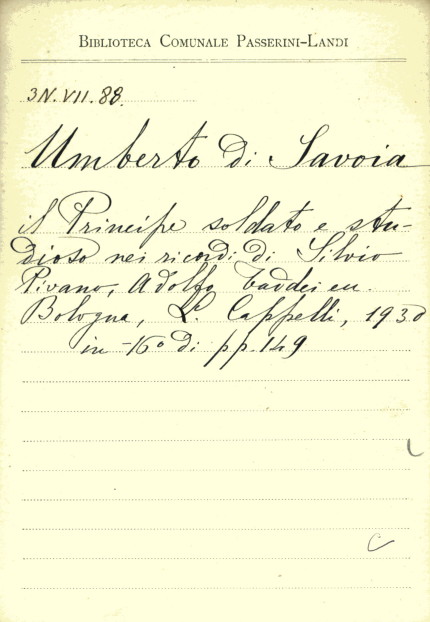 BIBLIOTECA COMUNALE PASSERINI-LANDI
3N.VII.88.
Umberto di Savoia
il Principe soldato e stu-
dioso nei ricordi di Silvio
Pivano, Adolfo Taddei ecc.
Bologna, L. Cappelli, 1930
in-16° di pp. 149
C